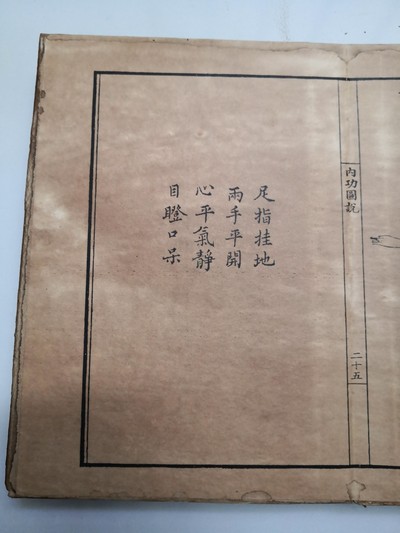 內功圖說
二十五
足指挂地
兩手平開
心平氣靜
目瞪口呆